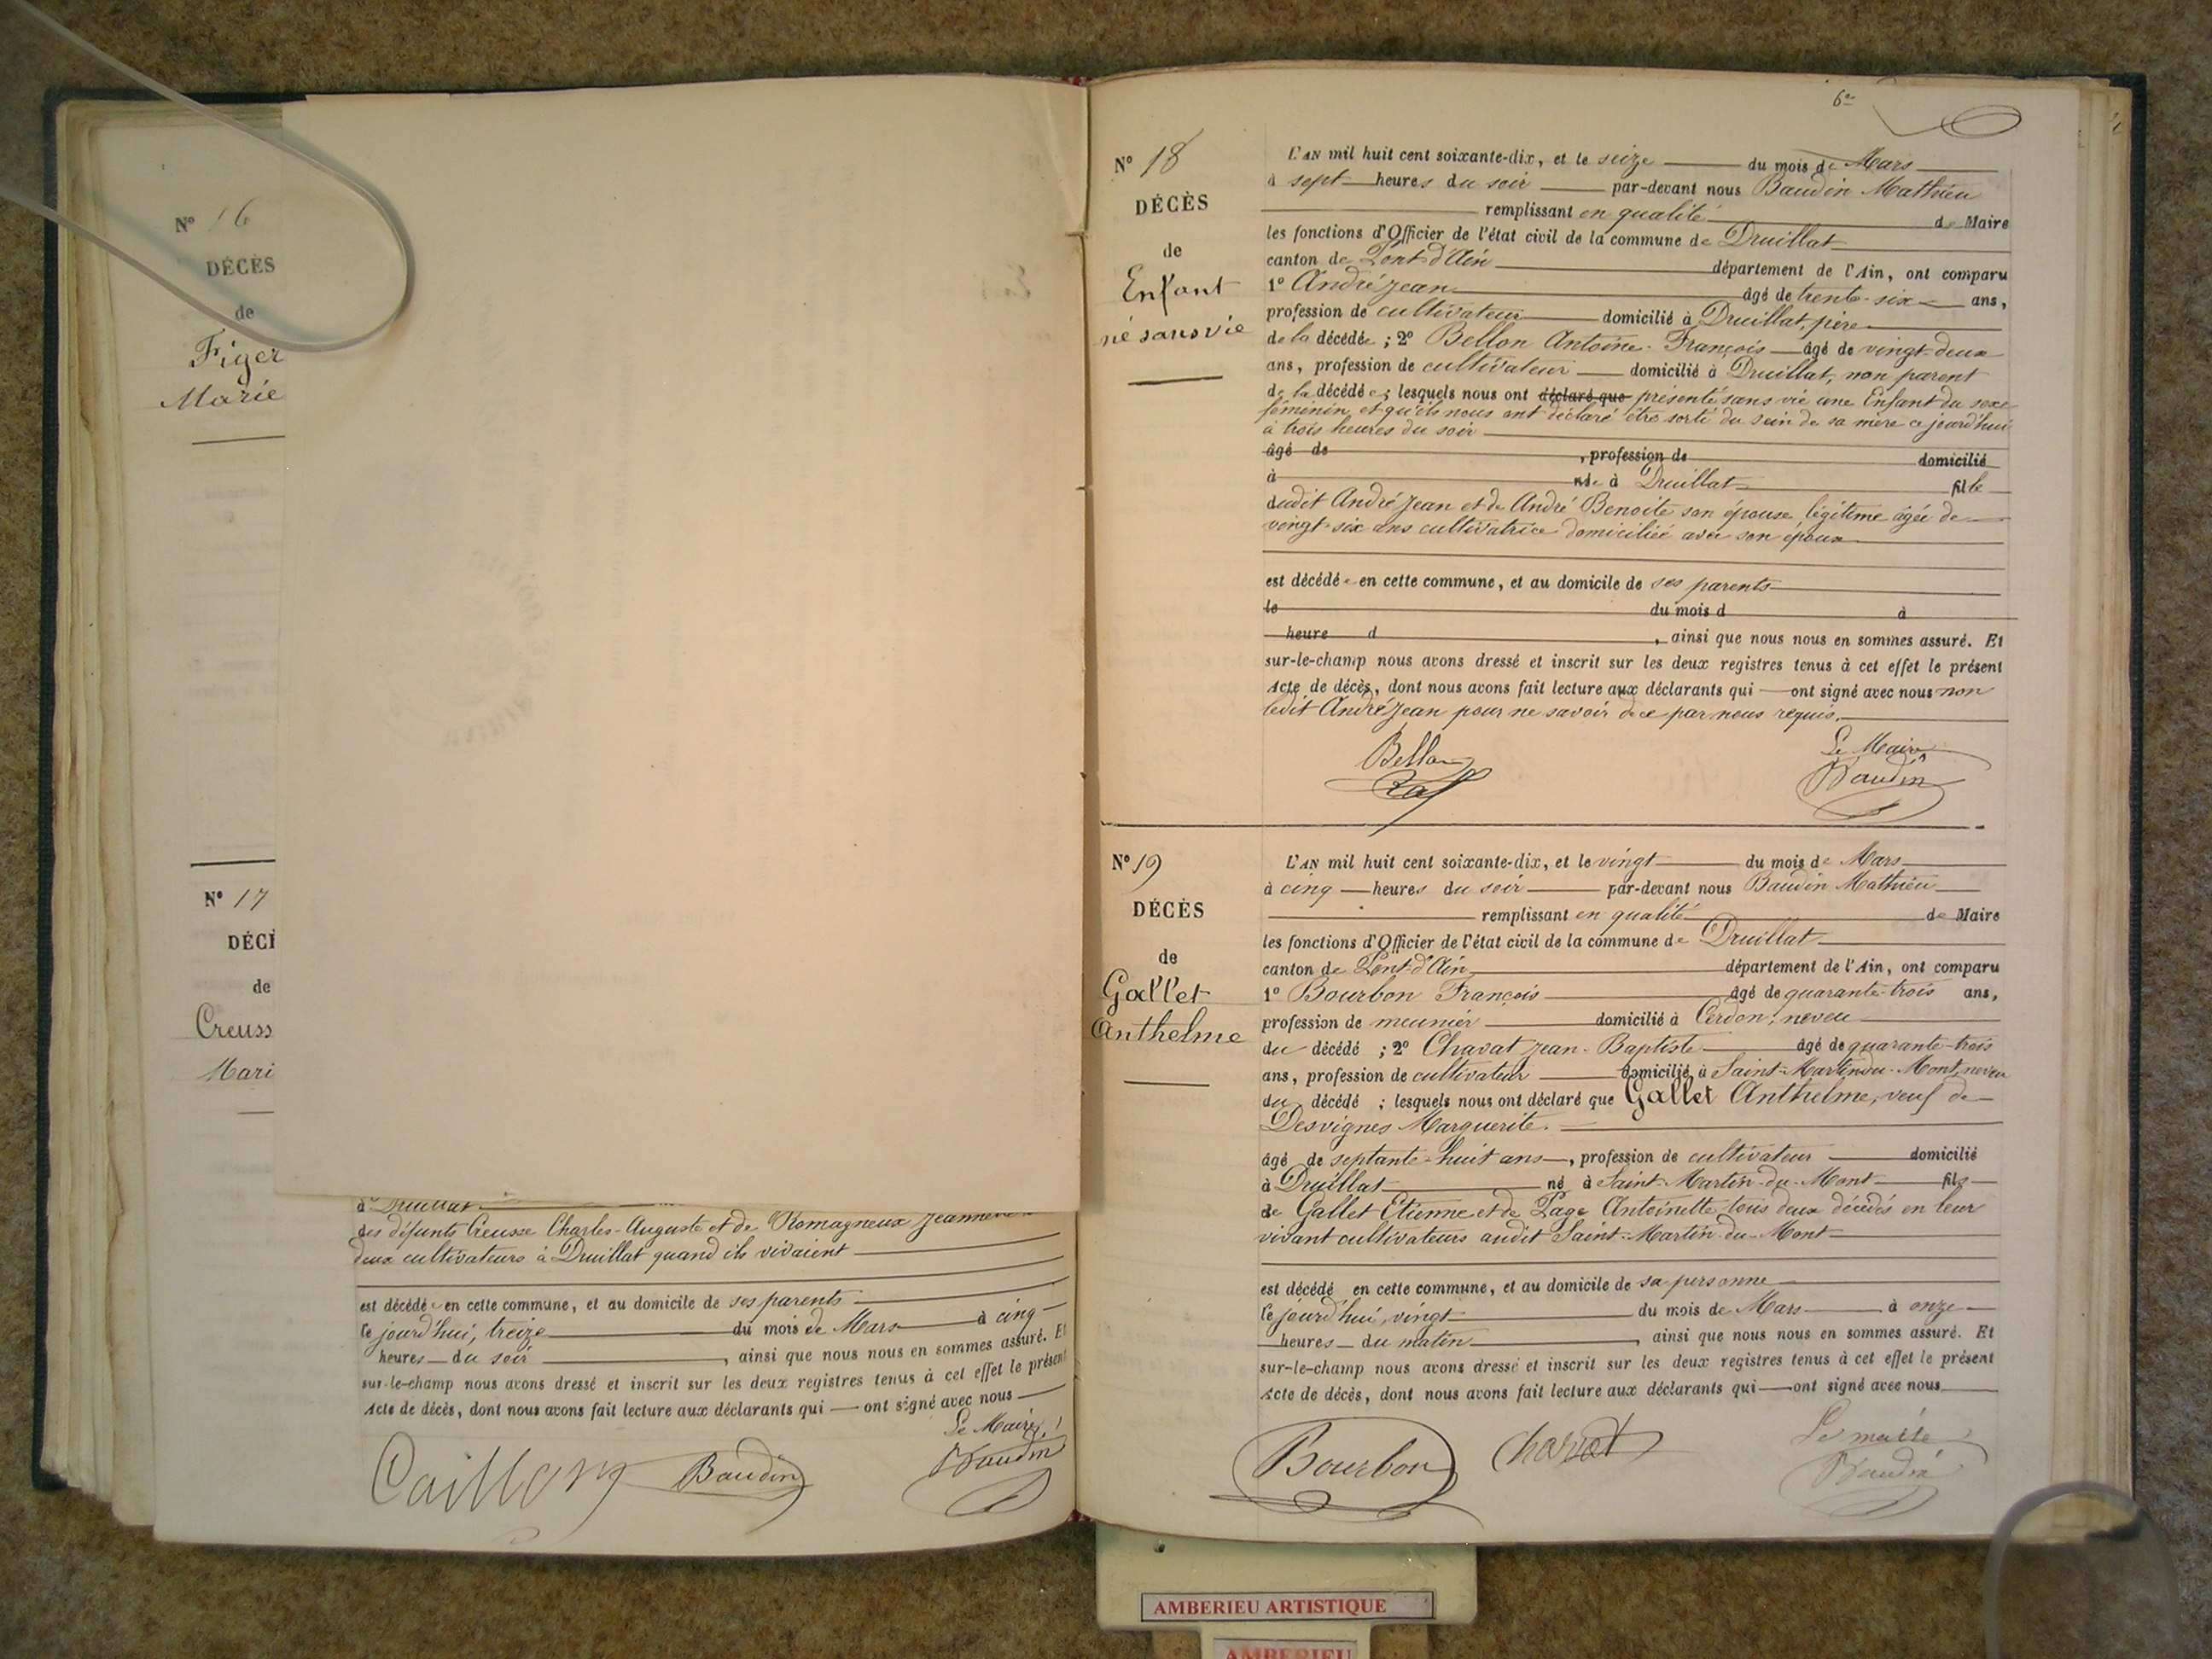 Nº 16
DÉCÈS
de
Figer
Marie
Nº 17
DÉCÈ
de
Creuss
Mari
à Druillat
des défunts Creusse Charles-Auguste et de Romagneux Jeanne
deux cultivateurs à Druillat quand ils vivaient
est décédée en cette commune, et au domicile de ses parents
ce jourd'hui, treize du mois de Mars à cinq
heures du soir, ainsi que nous nous en sommes assuré. Et
sur-le-champ nous avons dressé et inscrit sur les deux registres tenus à cet effet le présent
Acte de décès, dont nous avons fait lecture aux déclarants qui ont signé avec nous
Le Maire
Baudin
Baudin
6e
Nº 18
DÉCÈS
de
Enfant
né sans vie
L'AN mil huit cent soixante-dix, et le seize du mois de Mars
à sept heures du soir par-devant nous Baudin Mathieu
remplissant en qualité de Maire
les fonctions d'Officier de l'état civil de la commune de Druillat
canton de Pont-d'Ain département de l'Ain, ont comparu
1º André Jean âgé de trente-six ans,
profession de cultivateur domicilié à Druillat, père
de la décédée ; 2º Bellon Antoine-François âgé de vingt-deux
ans, profession de cultivateur domicilié à Druillat, non parent
de la décédée ; lesquels nous ont déclaré que présenté sans vie une Enfant du sexe
féminin, et qu'ils nous ont déclaré être sorti du sein de sa mère ce jourd'hui
à trois heures du soir
âgé de , profession de domicilié
à née à Druillat fille
dudit André Jean et de André Benoite son épouse légitime âgée de
vingt-six ans cultivatrice domiciliée avec son époux
est décédée en cette commune, et au domicile de ses parents
le du mois d à
heure d , ainsi que nous nous en sommes assuré. Et
sur-le-champ nous avons dressé et inscrit sur les deux registres tenus à cet effet le présent
Acte de décès, dont nous avons fait lecture aux déclarants qui ont signé avec nous non
ledit André Jean pour ne savoir de ce par nous requis.
Bellon
Le Maire
Baudin
Nº 19
DÉCÈS
de
Gallet
Anthelme
L'AN mil huit cent soixante-dix, et le vingt du mois de Mars
à cinq heures du soir par-devant nous Baudin Mathieu
remplissant en qualité de Maire
les fonctions d'Officier de l'état civil de la commune de Druillat
canton de Pont-d'Ain département de l'Ain, ont comparu
1º Bourbon François âgé de quarante-trois ans,
profession de meunier domicilié à Cerdon, neveu
du décédé ; 2º Chavat Jean-Baptiste âgé de quarante-trois
ans, profession de cultivateur domicilié à Saint-Martin-du-Mont, neveu
du décédé ; lesquels nous ont déclaré que Gallet Anthelme, veuf de
Desvignes Marguerite.
âgé de septante-huit ans, profession de cultivateur domicilié
à Druillat né à Saint-Martin-du-Mont fils
de Gallet Etienne et de Page Antoinette tous deux décédés en leur
vivant cultivateurs audit Saint-Martin-du-Mont
est décédé en cette commune, et au domicile de sa personne
ce jourd'hui, vingt du mois de Mars à onze
heures du matin, ainsi que nous nous en sommes assuré. Et
sur-le-champ nous avons dressé et inscrit sur les deux registres tenus à cet effet le présent
Acte de décès, dont nous avons fait lecture aux déclarants qui ont signé avec nous
Bourbon
Chavat
Le maire
Baudin
AMBERIEU ARTISTIQUE
AMBERIEU